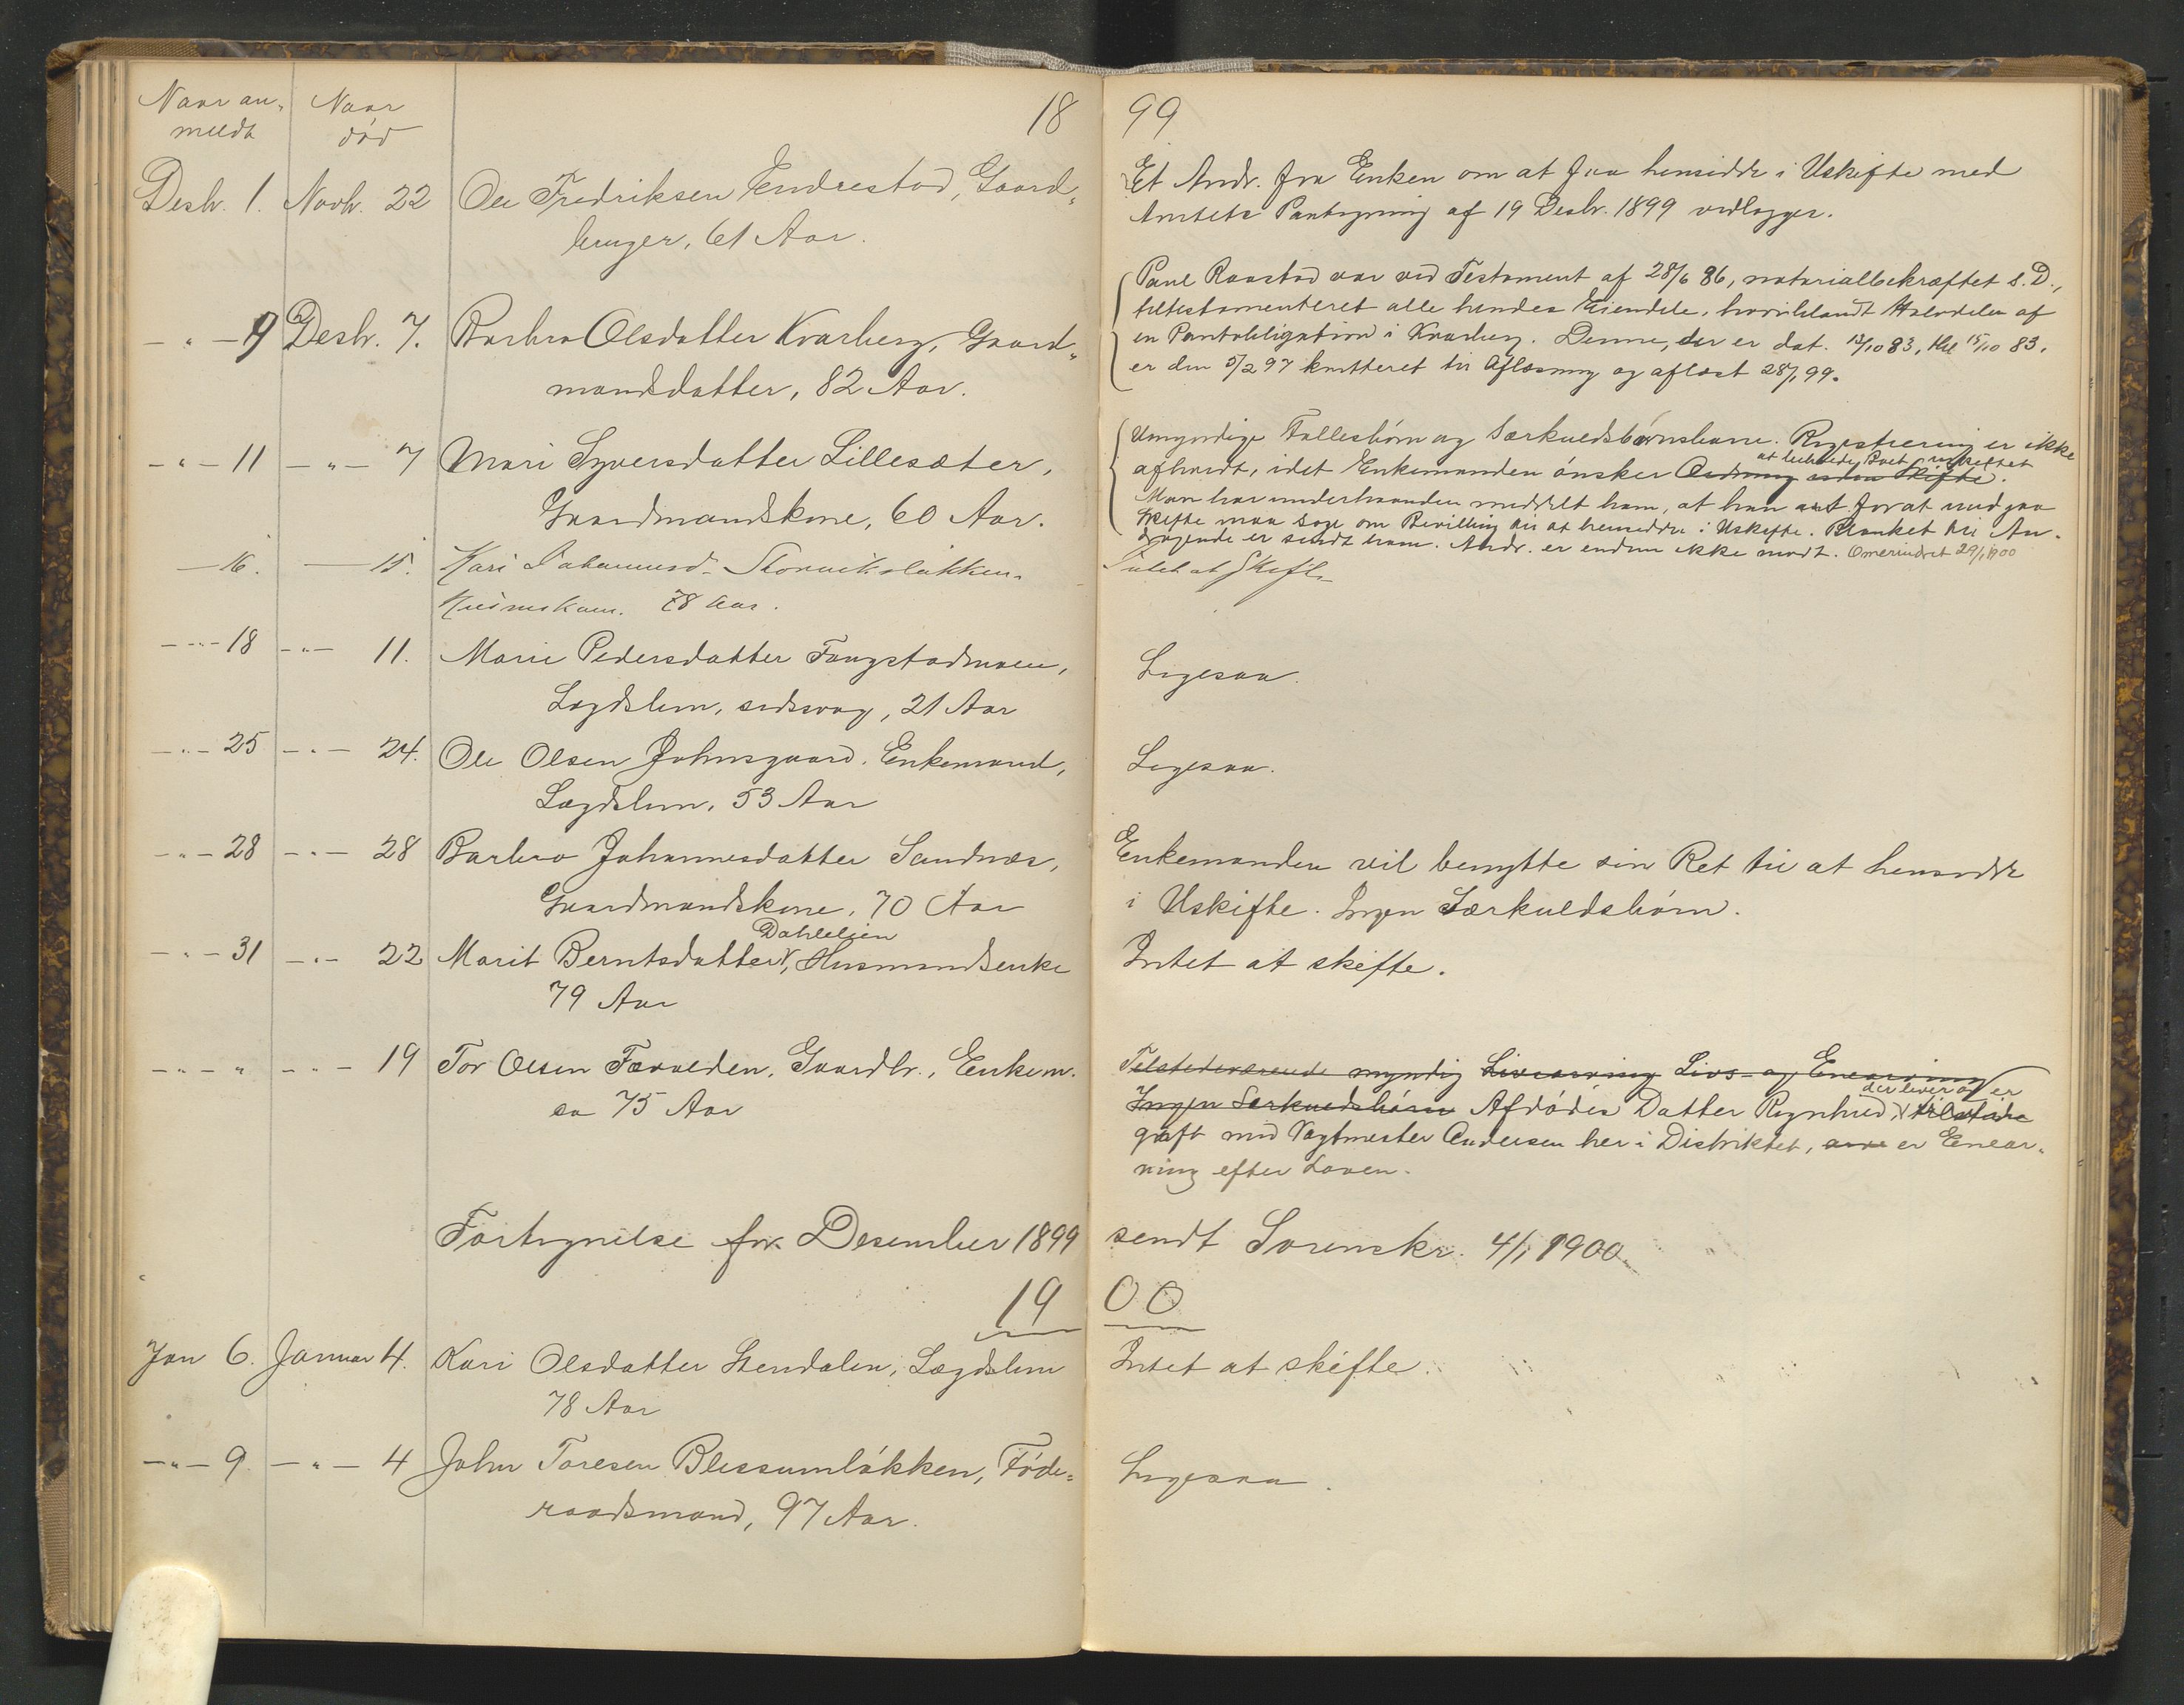 Naar an- Naar 18 99
meldt død
Desbr. 1. Novbr. 22 Ole Fredriksen Endrestad, Gaard-
bruger, 61 Aar.
Et Andr. fra Enken om at faa hensidde i Uskifte med
Amtets Paategning af 19 Desbr. 1899 vedlægges.
- " - 9 Desbr. 7. Barbra Olsdatter Kvarberg, Gaard-
mandsdatter, 82 Aar.
Paul Raastad var ved Testament af 28/6 86, notarialbekræftet s. D.,
tiltestamenteret alle hendes Eiendele, hvoriblandt Halvdelen af
en Pantobligation i Kvarberg. Denne, der er dat. 13/10 83, thl 15/10 83,
er den 5/2 97 kvitteret til Aflæsning og aflæst 28/1 99.
- " - 11 - " - 7 Mari Syversdatter Lillesæter,
Gaardmandskone, 60 Aar.
Umyndige Fællesbørn og Særkuldsbørnsbarn. Registrering er ikke
at beholde Boet uskiftet
afholdt, idet Enkemanden ønsker Ordning uden Skifte.
Man har underhaanden meddelt ham, at han for at undgaa
Skifte maa søge om Bevilling til at hensidde i Uskifte. Blanket til An-
dragende er sendt ham. Andr. er endnu ikke modt. Omerindret 29/1 1900
- 16. - 15. Kari Johannesd. Storvikløkken.
Husmskone. 78 Aar.
Intet at Skifte
- " - 18 - " - 11. Marie Pedersdatter Fougstadmoen,
Lægdslem, sidssvag, 21 Aar
Ligesaa.
- " - 25 - " - 24. Ole Olsen Johnsgaard. Enkemand,
Lægdslem, 53 Aar
Ligesaa.
- " - 28 - " - 28 Barbro Johannesdatter Sandnæs,
Gaardmandskone, 70 Aar
Enkemanden vil benytte sin Ret til at hensidde
i Uskifte. Ingen Særkuldsbørn.
Dahleljen
- " - 31 - " - 22 Marit Berntsdatter, Husmandsenke
79 Aar
Intet at skifte.
- " - " - " - 19 Tor Olsen Sørvolden, Gaardbr., Enkem.
ca 75 Aar
Tilstedeværende myndig Livsarving Livs- og Enearving
der lever og er
Ingen Særkuldsbørn Afdødes Datter Ragnhild, tilstede
gift med Vagtmester Andersen her i Distriktet, er Enear-
ving efter Loven.
Fortegnelse for Desember 1899 sendt Sorenskr. 4/1 1900.
19 00
Jan 6. Januar 4. Kari Olsdatter Stendalen, Lægdslem
78 Aar
Intet at skifte.
- " - 9 - " - 4 John Toresen Blessumløkken, Føde-
raadsmand, 97 Aar.
Ligesaa.